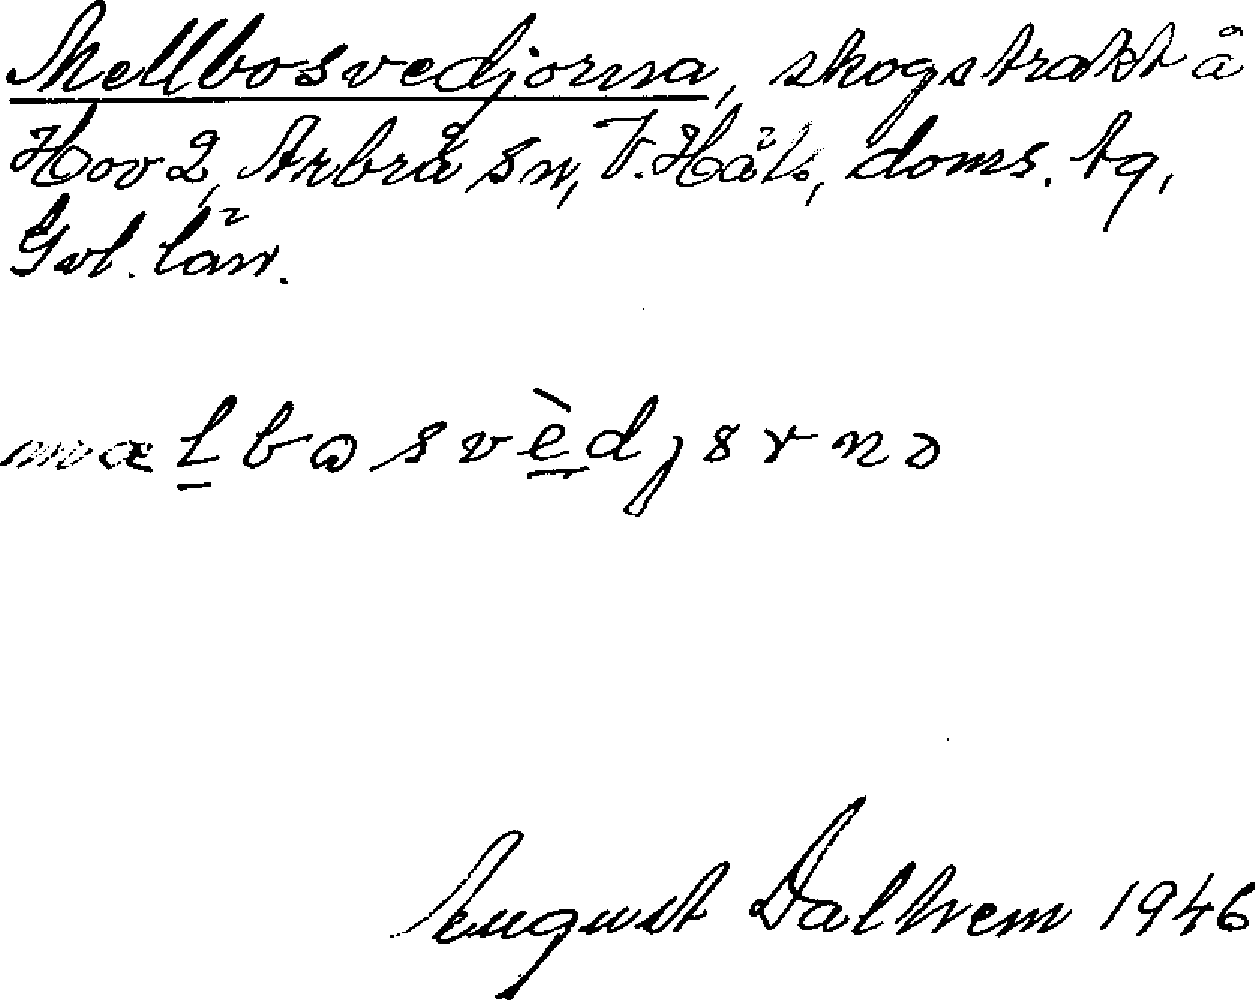 Mellbosvedjorna, skogstrakt å
Hov 2, Arbrå sn, V. Häls, doms. tg,
Gvl. län.
mælbɷsvèdjsrnɔ
August Dalhem 1946